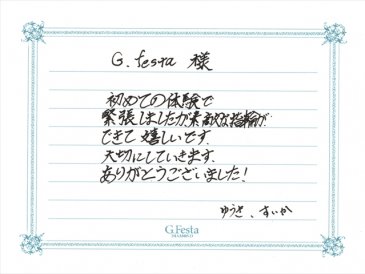 G.festa 様
初めての体験で
緊張しましたが素敵な指輪が
できて嬉しいです。
大切にしていきます。
ありがとうございました!
ゆうき、すいか
G.Festa